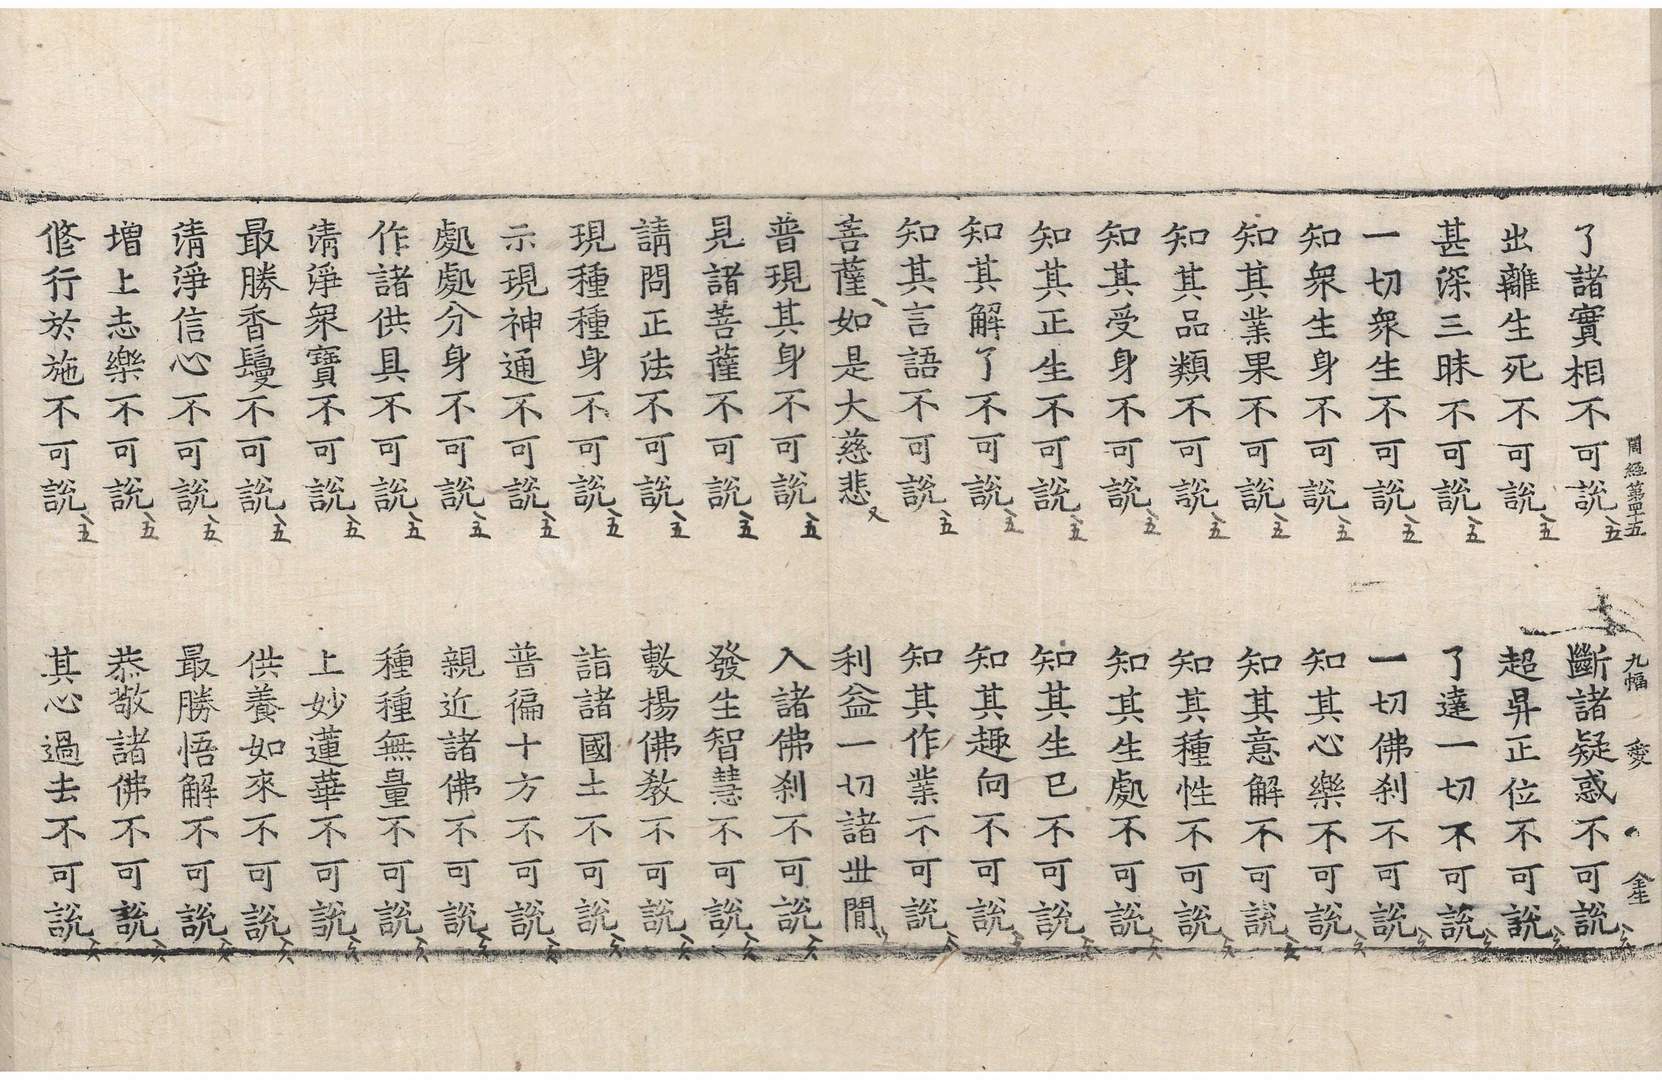 周經第四十五 九幅
了諸實相不可說 斷諸疑惑不可說
出離生死不可說 超昇正位不可說
甚深三昧不可說 了達一切不可說
一切衆生不可說 一切佛刹不可說
知衆生身不可說 知其心樂不可說
知其業果不可說 知其意解不可說
知其品類不可說 知其種性不可說
知其受身不可說 知其生處不可說
知其正生不可說 知其生已不可說
知其解了不可說 知其趣向不可說
知其言語不可說 知其作業不可說
菩薩如是大慈悲 利益一切諸世間
普現其身不可說 入諸佛刹不可說
見諸菩薩不可說 發生智慧不可說
請問正法不可說 敷揚佛教不可說
現種種身不可說 詣諸國土不可說
示現神通不可說 普徧十方不可說
處處分身不可說 親近諸佛不可說
作諸供具不可說 種種無量不可說
清淨衆寶不可說 上妙蓮華不可說
最勝香鬘不可說 供養如來不可說
清淨信心不可說 最勝悟解不可說
增上志樂不可說 恭敬諸佛不可說
修行於施不可說 其心過去不可說